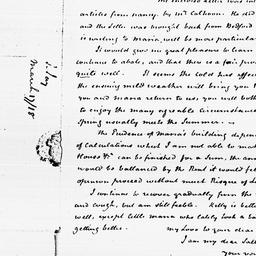 articles from nancy, by mr. Calhoon. He did
and the Letter was brought back from Bedford
is writing to maria will be more particular
It would give me great pleasure to learn
continues to abate, and that there is a fair pros
quite well. It seems the cold has affec
the ensuing mild weather will bring you
you and maria return to us, you will both
to enjoy the many agreable circumstance
Spring usually meets the Summer.
The Prudence of Maria's building depen
of calculations which I am not able to ma
House &c. can be finished for a Sum, the an
would be ballanced by the Rent it would fet
opinion proceed without much Risque of
I continue to recover gradually from the
and cough, but am still feeble. Nelly is bette
well, except little maria who lately took a
getting better. My Love to your dear
I am my dear Sall
your
J. Jay
March 1818